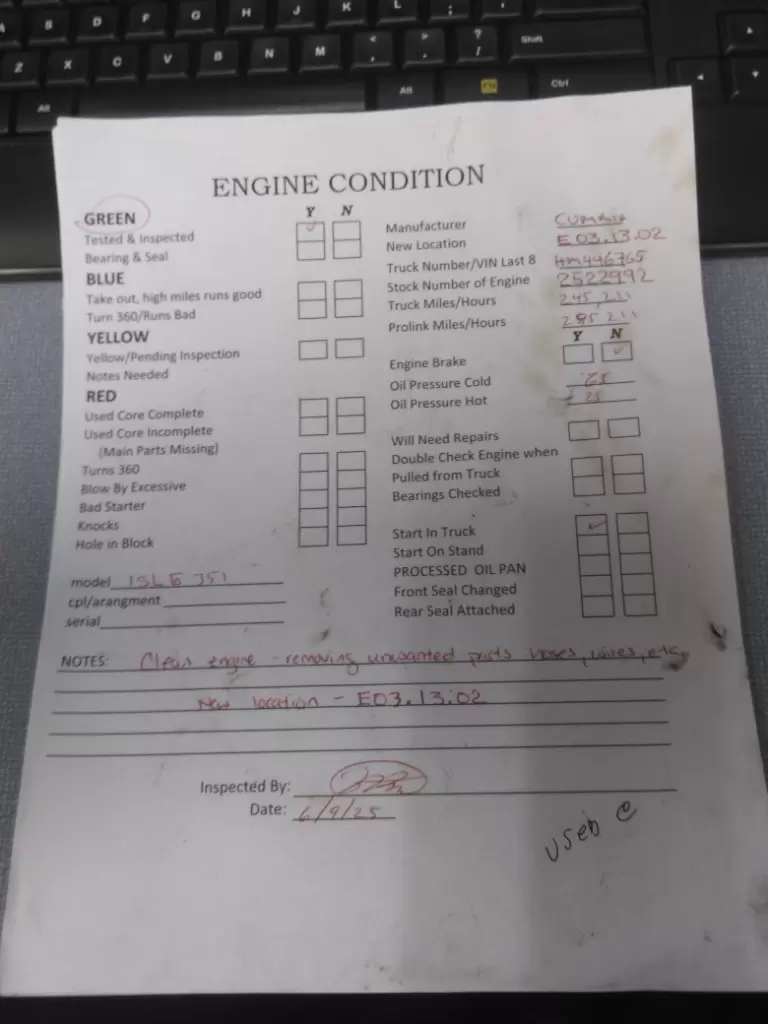 S D F G H J K L ; '
Z X C V B N M < , > . ? / Shift
Alt Alt Fn Ctrl
ENGINE CONDITION
GREEN Y N
Tested & Inspected
Bearing & Seal
BLUE
Take out, high miles runs good
Turn 360/Runs Bad
YELLOW
Yellow/Pending Inspection
Notes Needed
RED
Used Core Complete
Used Core Incomplete
(Main Parts Missing)
Turns 360
Blow By Excessive
Bad Starter
Knocks
Hole in Block
model ISL G 351
cpl/arangment
serial
Manufacturer
New Location E03.13.02
Truck Number/VIN Last 8 HM446765
Stock Number of Engine 2522992
Truck Miles/Hours 295,211
Prolink Miles/Hours 295 211
Y N
Engine Brake
Oil Pressure Cold
Oil Pressure Hot 25
Will Need Repairs
Double Check Engine when
Pulled from Truck
Bearings Checked
Start In Truck
Start On Stand
PROCESSED OIL PAN
Front Seal Changed
Rear Seal Attached
NOTES: Clean engine - removing unwanted parts hoses, wires, etc,
New location - E03.13.02
Inspected By:
Date: 6/9/25
USED C